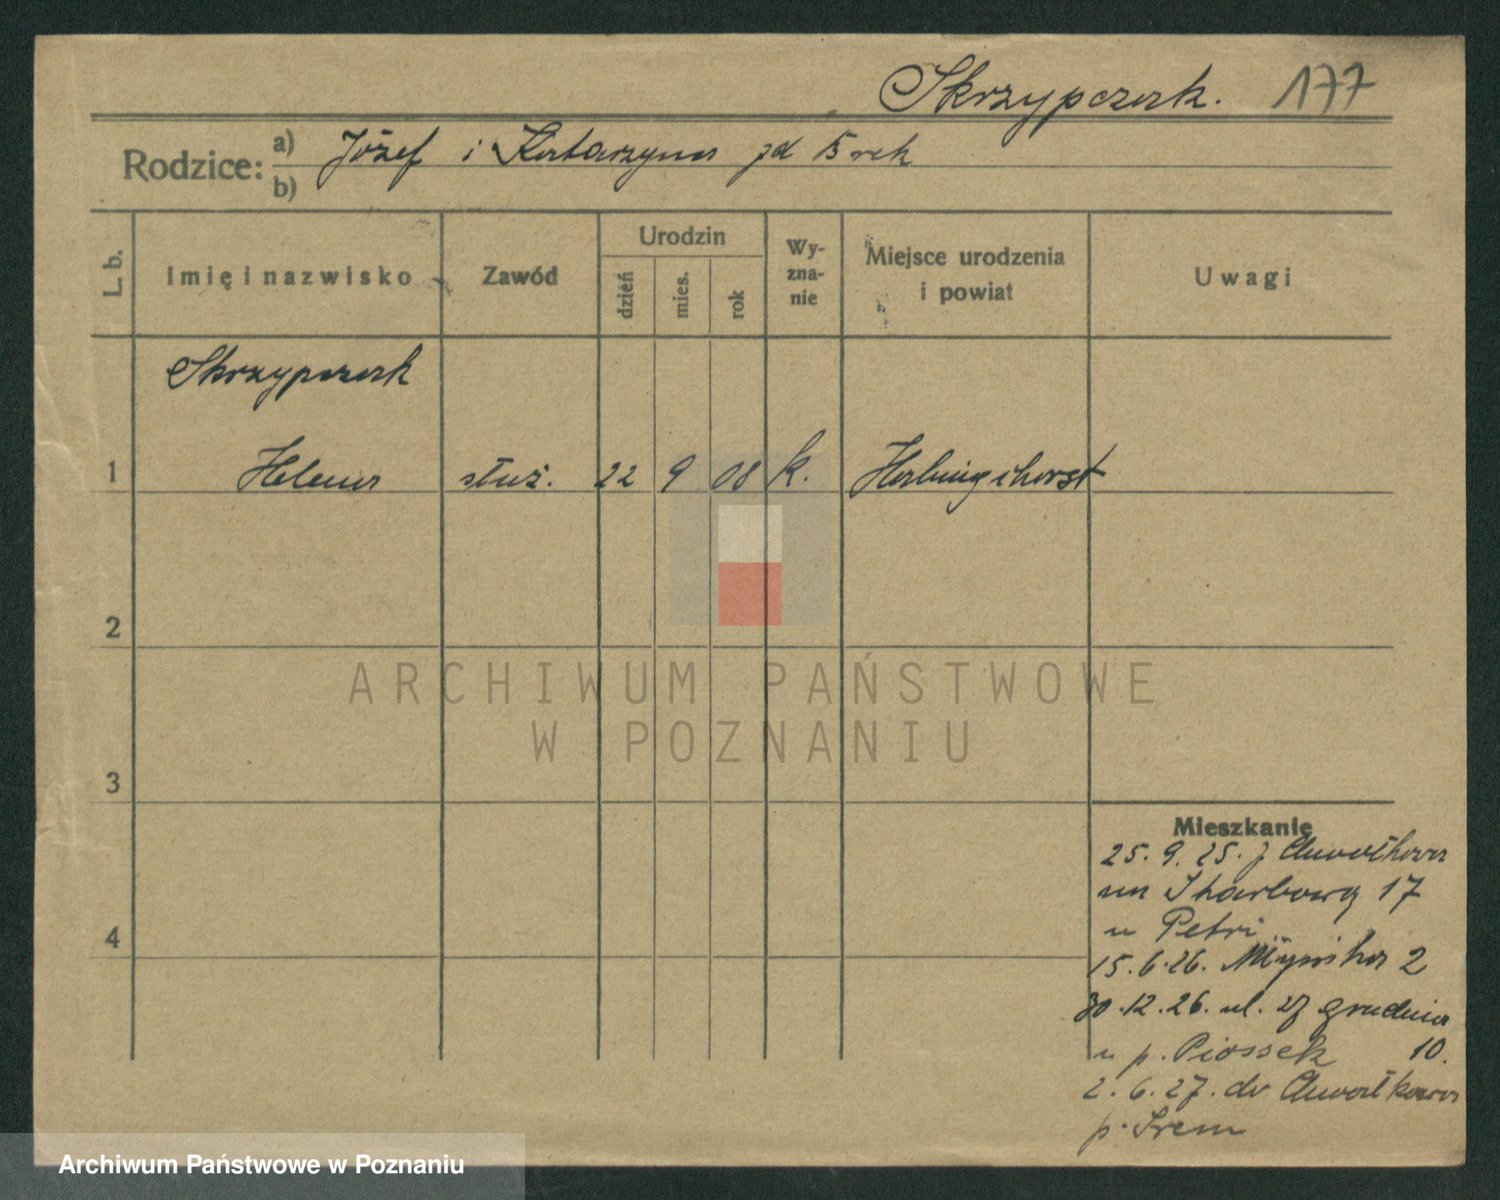 Skrzypczak. 177
Rodzice: a) Józef i Katarzyna zd
b)
L. b.
Imię i nazwisko
Zawód
Urodzin
dzień
mies.
rok
Wy-
zna-
nie
Miejsce urodzenia
i powiat
Uwagi
Skrzypczak
1 Helena służ. 22 9 08 k.
2
3
4
Mieszkanie
25. 9. 25. z Chwałkowa
na Skarbową 17
u Petri
15.6.26. Młyńska 2
30.12.26. ul. 27 grudnia
u p. Piossek 10.
2. 6. 27. do Chwałkowa
p. Śrem
ARCHIWUM PAŃSTWOWE
W POZNANIU
Archiwum Państwowe w Poznaniu